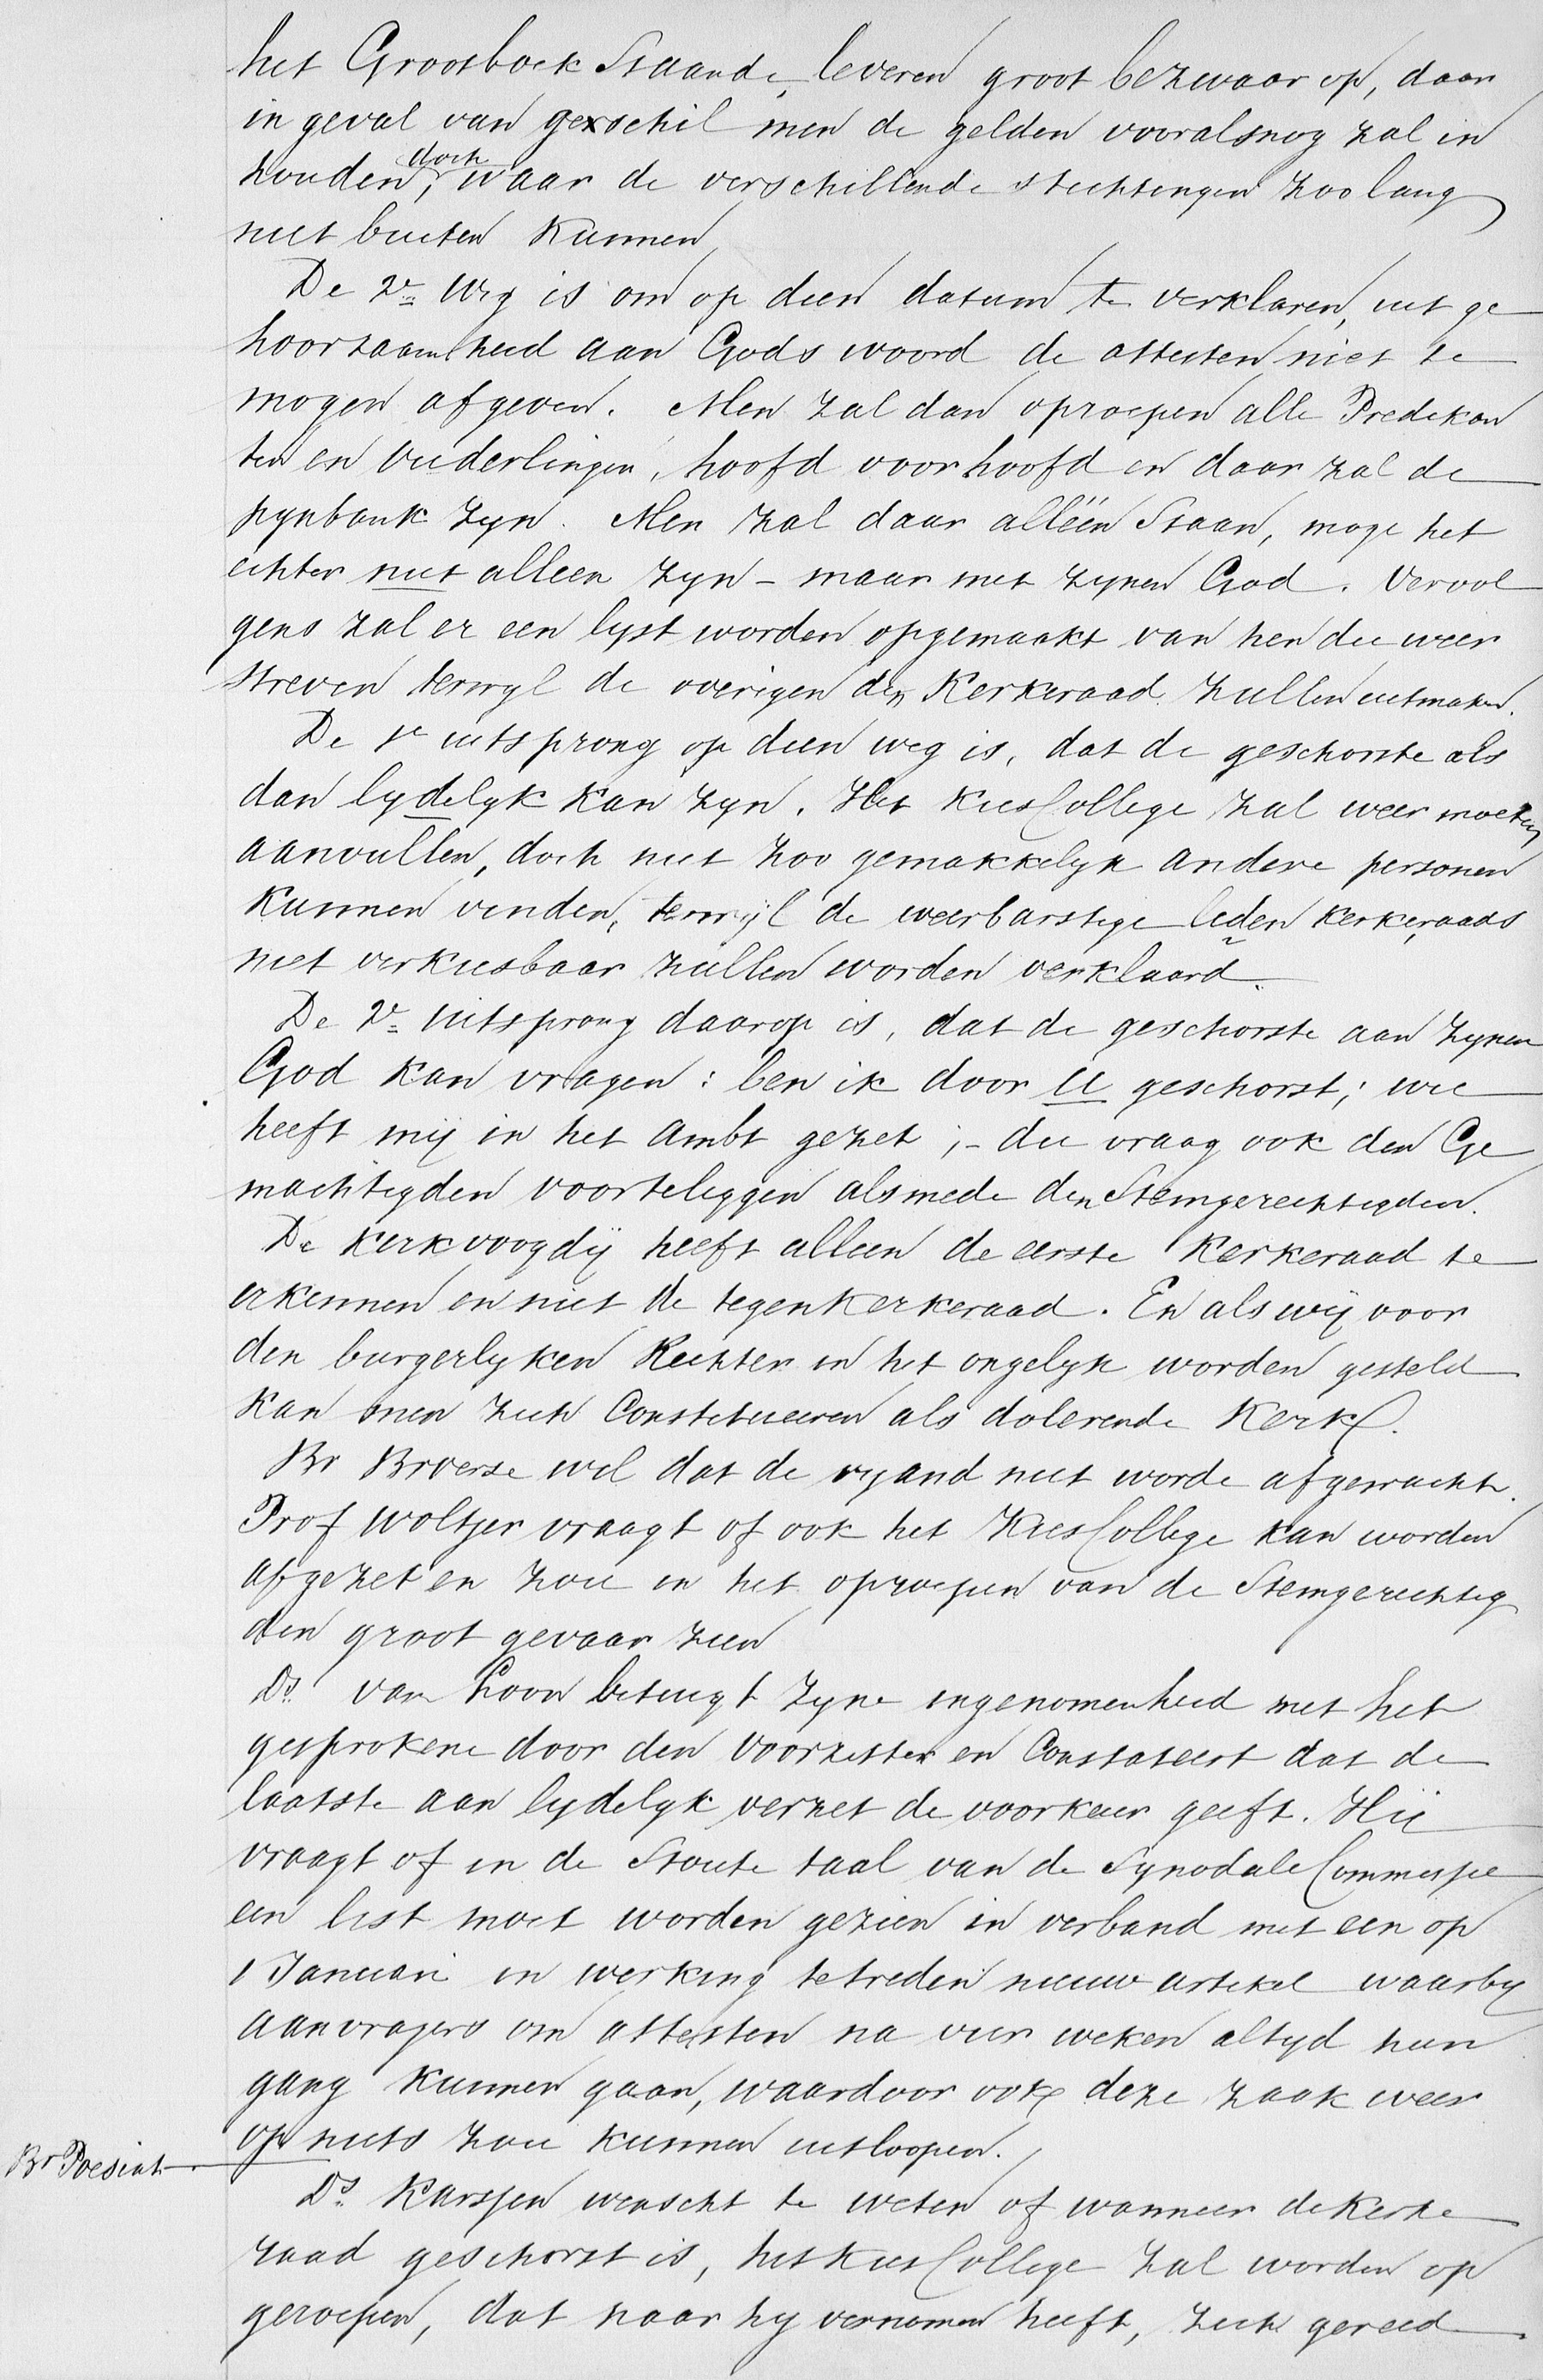 het Grootboek Staande, leveren groot bezwaar op, daar
in geval van geschil men de gelden vooralsnog zal in
houden, doch waar de verschillende stichtingen zoo lang
niet buiten kunnen
De 2e Weg is om op dien datum te verklaren, uit ge
hoorzaamheid aan Gods woord de attesten niet te
mogen afgeven. Men zal dan oproepen alle Predikan
ten en ouderlingen, hoofd voor hoofd en daar zal de
pynbank zyn. Men zal daar alléén Staan, moge het
echter niet alleen zyn - maar met zynen God. Vervol
gens zal er een lyst worden opgemaakt van hen die weer
streven terwyl de overigen den Kerkeraad zullen uitmaken.
De 1e uitsprong op dien weg is, dat de geschorste als
dan lydelyk kan zyn. Het KiesCollege zal weer moeten
aanvullen, doch niet zoo gemakkelyk andere personen
kunnen vinden, terwijl de weerbarstige leden kerkeraads
niet verkiesbaar zullen worden verklaard.
De 2e uitsprong daarop is, dat de geschorste aan zynen
God kan vragen: ben ik door U geschorst; wie
heeft mij in het Ambt gezet; - die vraag ook den Ge
machtigden voorteleggen alsmede den Stemgerechtigden.
De Kerkvoogdij heeft alleen de eerste Kerkeraad te
erkennen en niet de tegenkerkeraad. En als wij voor
den burgerlyken Rechter in het ongelyk worden gesteld
kan men zich Constitueeren als dolerende Kerk.
Br Broerse wil dat de vyand niet worde afgewacht.
Prof Woltjer vraagt of ook het KiesCollege kan worden
afgezet en zou in het oproepen van de Stemgerechtig
den groot gevaar zien
Ds. van Loon betuigt zyne ingenomenheid met het
gesprokene door den Voorzitter en Constateert dat de
laatste aan lydelyk verzet de voorkeur geeft. Hij
vraagt of in de Stoute taal van de Synodale Commissie
een list moet worden gezien in verband met een op
1 Januari in werking tetreden nieuw artikel waarby
aanvragers om attesten na vier weken altyd hun
gang kunnen gaan, waardoor ook deze zaak weer
op niets zou kunnen uitloopen.
Br Poesiat
Ds. Karssen wenscht te weten of wanneer de Kerke
raad geschorst is, het KiesCollege zal worden op
geroepen, dat naar hy vernomen heeft, zich gereed